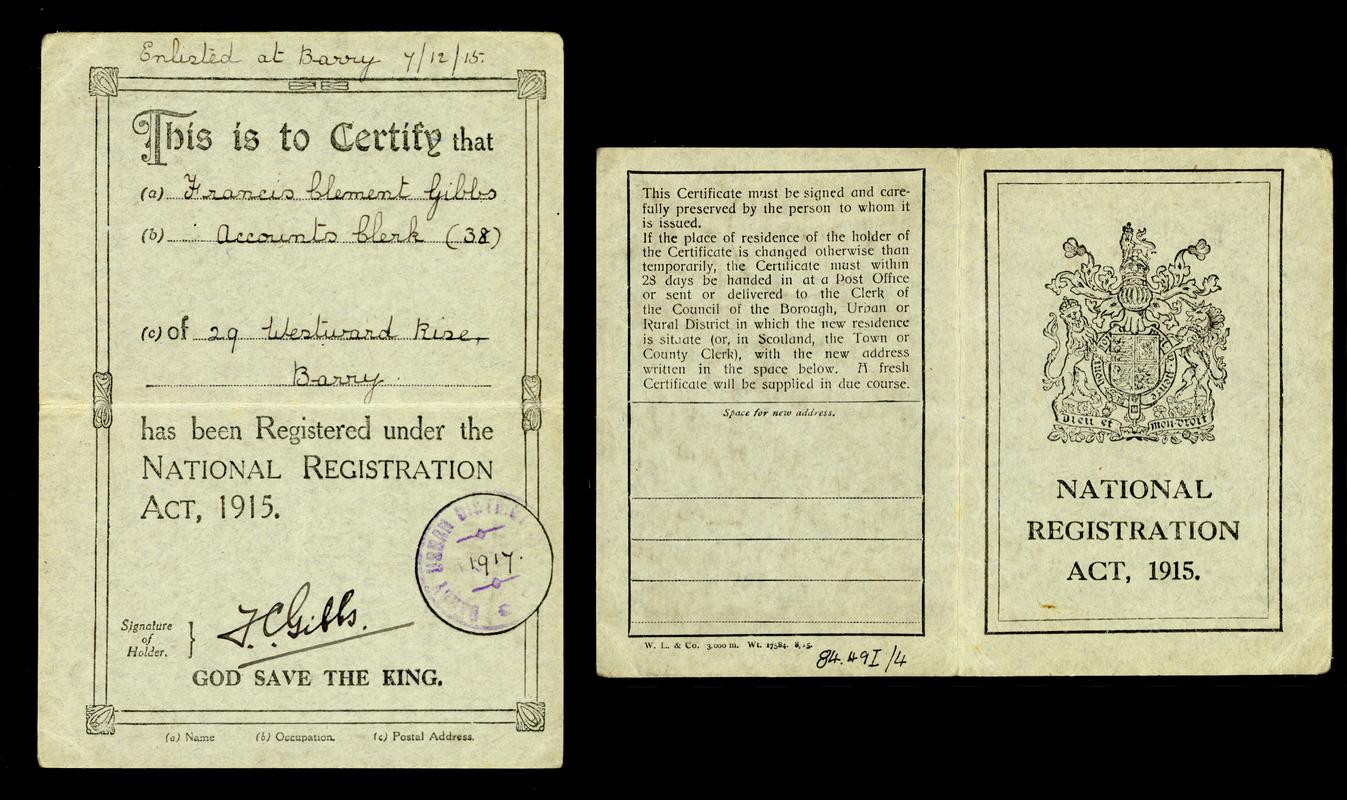 Enlisted at Barry 7/12/15.
This is to Certify that
(a) Francis Clement Gibbs
(b) Accounts Clerk (38)
(c) of 29 Westward Rise,
Barry.
has been Registered under the
NATIONAL REGISTRATION
ACT, 1915.
BARRY URBAN DISTRICT
1917.
Signature
of
Holder.
F C Gibbs.
GOD SAVE THE KING.
(a) Name (b) Occupation. (c) Postal Address.
This Certificate must be signed and care-
fully preserved by the person to whom it
is issued.
If the place of residence of the holder of
the Certificate is changed otherwise than
temporarily, the Certificate must within
28 days be handed in at a Post Office
or sent or delivered to the Clerk of
the Council of the Borough, Urban or
Rural District in which the new residence
is situate (or, in Scotland, the Town or
County Clerk), with the new address
written in the space below. A fresh
Certificate will be supplied in due course.
Space for new address.
W. L. & Co. 3,000 m. Wt. 17584. 8,15.
84.49I/4
DIEU ET MON DROIT
NATIONAL
REGISTRATION
ACT, 1915.